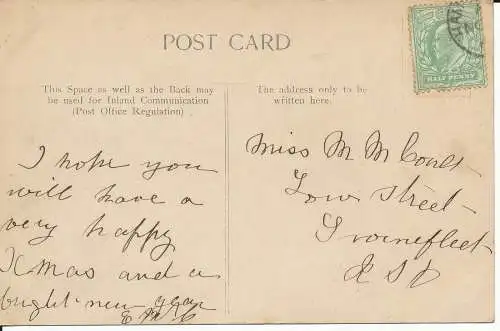 POST CARD
This Space as well as the Back may
be used for Inland Communication
(Post Office Regulation)
The address only to be
written here.
HALF PENNY
I hope you
will have a
very happy
Xmas and a
bright new year
Miss M M Coult
Low Street